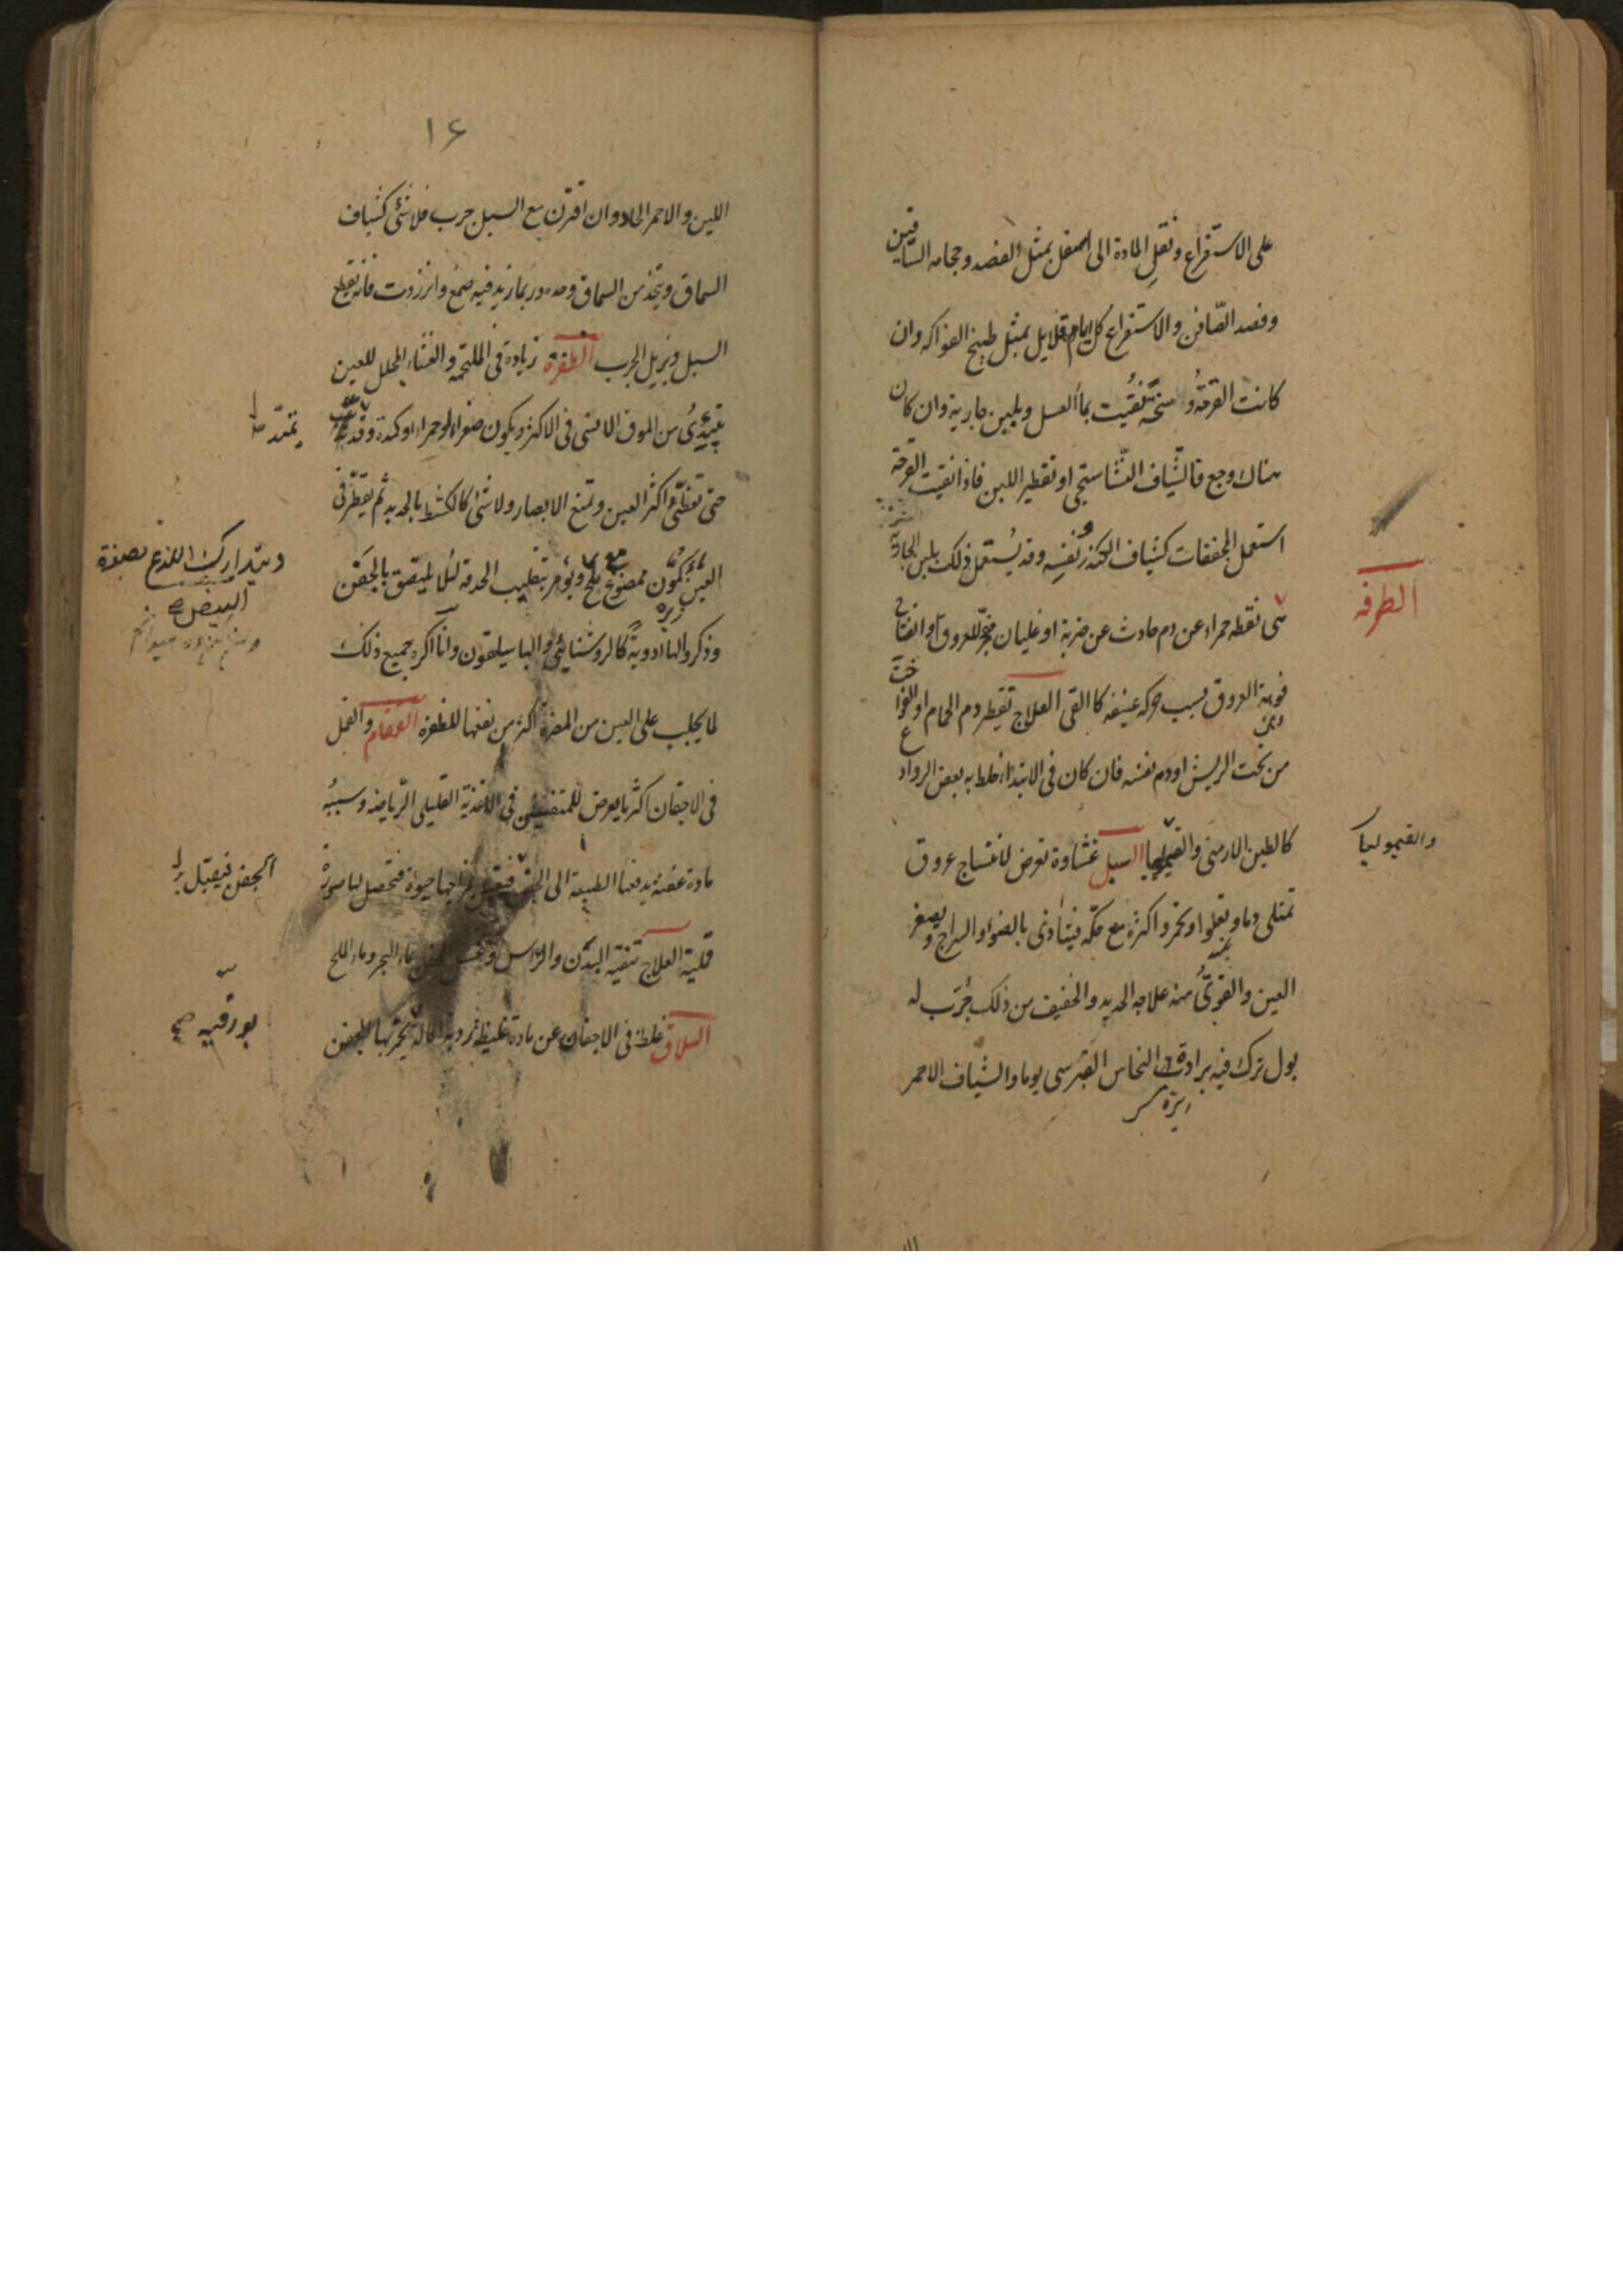 على الاستفراغ ونقل المادة الى اسفل بمثل الفصد وحجامه الساقين
وفصد الصّافن والاستفراغ كل ايام قلايل بمثل طبيخ الفواكه وان
كانت القرحة وسخة نُقّيت بماء العسل وبلبن جارية وان كان
هناك وجع فالشّياف النّشاستجى او تقطير اللبن فاذا نقيت القرحة
استعمل المجففات كشياف الكندر ونفسه وقد يُستعمل ذلك بلبن الجارية
الطرفه
هى نقطه حمراء عن دم حادث عن ضربة او غليان مفجّر للعروق او انفتاح
فوهة العروق بسبب حركه عنيفه كالقى العلاج تقطير دم الحمام او الفواخت
من تحت الريش او دم نفسه فان كان فى الابتداء خلط به بعض الروادع
كالطين الارمنى والقيموليا السبل غشاوة تعرض لانتساج عروق
والقيموليا
تمتلى دما وتغلوا وتحمر واكثره مع حكّه فيتأذى بالضوء او السراج ويصغر
العين والقوىُّ منه علاجه الحديد والخفيف من ذلك جُرّب له
بول ترك فيه برادة النحاس القبرسى يوما والشياف الاحمر
١٤
اللين والاحمر الحاد وان اقترن مع السبل جرب فلا شئ كشياف
السماق ويتخذ من السماق وحده وربما زيد فيه صمغ وانزروت فانه يقلع
السبل ويزيل الجرب الظفرة زيادة فى الملتحمة والغشاء المجلل للعين
يبتدئ من الموق الانسى فى الاكثر ويكون صفراء او حمراء او كمدة وقد
تمتدّ
حتى تغطّى اكثر العين وتمنع الابصار ولا شئ كالكشط بالحديد ثم يقطّر فى
العين كمّون ممضوغ مع ملح ويؤمر بتقليب الحدقة لئلا يلتصق بالجفن
ويتدارك اللذع بصفرة
البيض
وذكروا لها ادوية كالروشنايى والباسليقون وانا اكره جميع ذلك
لما يجلب على العين من المضرة اكثر من نفعها للظفرة القمقام والقمل
فى الاجفان اكثر ما يعرض للمتفننين فى الاغذية القليلى الرّياضه وسببُه
مادة عفنة يدفعها الطبيعة الى الجفن فيقبل مزاجها حيوة فتحصل لها صورة
الجفن فيقبل
قملية العلاج تنقية البدن والرّاس وغسل الجفن بماء البحر وماء الملح
السلاق غلظ فى الاجفان عن مادة غليظة ردية اكالة يحمرّ بها الجفن
بورقيه صح